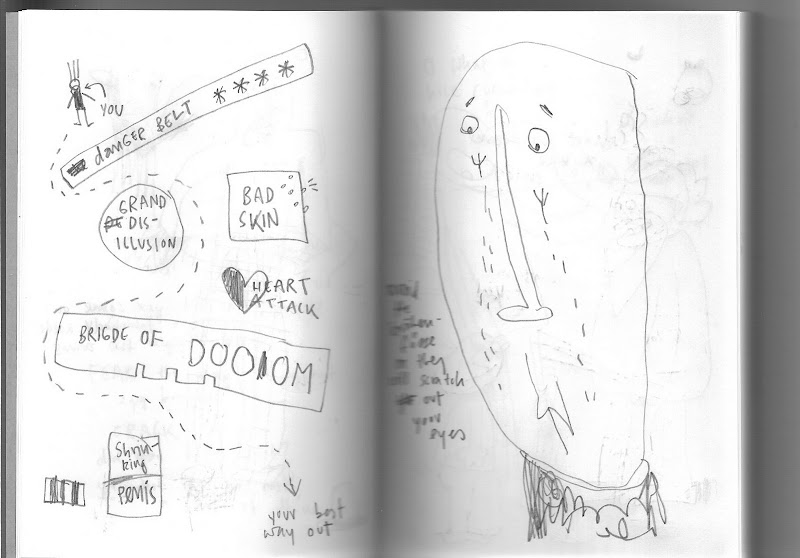 YOU
danger BELT ****
GRAND
DIS-
ILLUSION
BAD
SKIN
HEART
ATTACK
BRIGDE OF DOOIOM
Shrin-
king
Penis
your best
way out
or they
will scratch
out
your
eyes